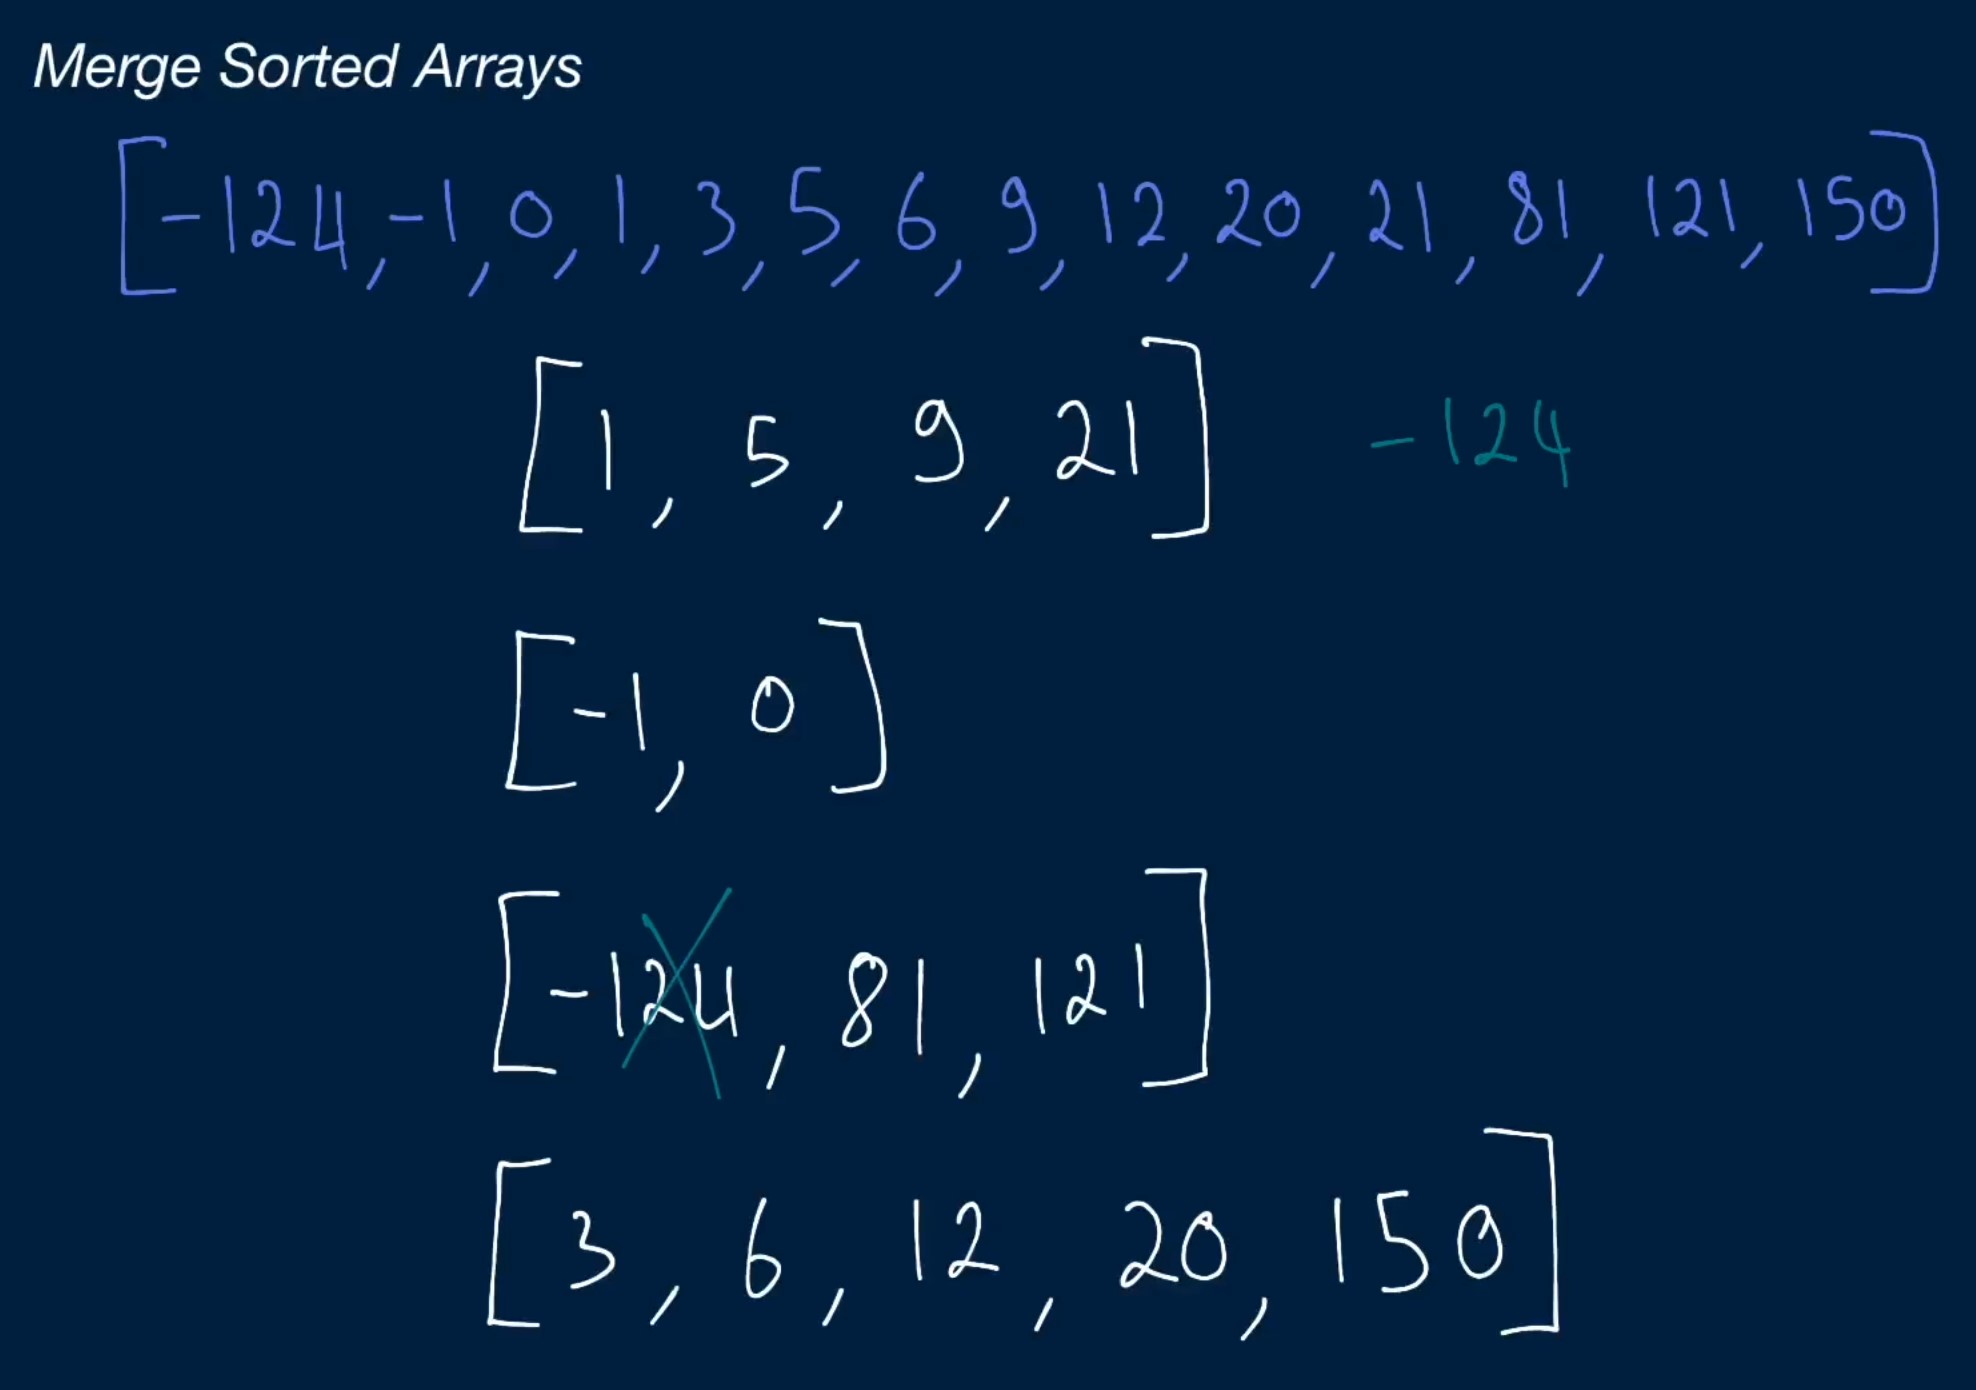 Merge Sorted Arrays
[-124, -1, 0, 1, 3, 5, 6, 9, 12, 20, 21, 81, 121, 150]
[1, 5, 9, 21] -124
[-1, 0]
[-124, 81, 121]
[3, 6, 12, 20, 150]